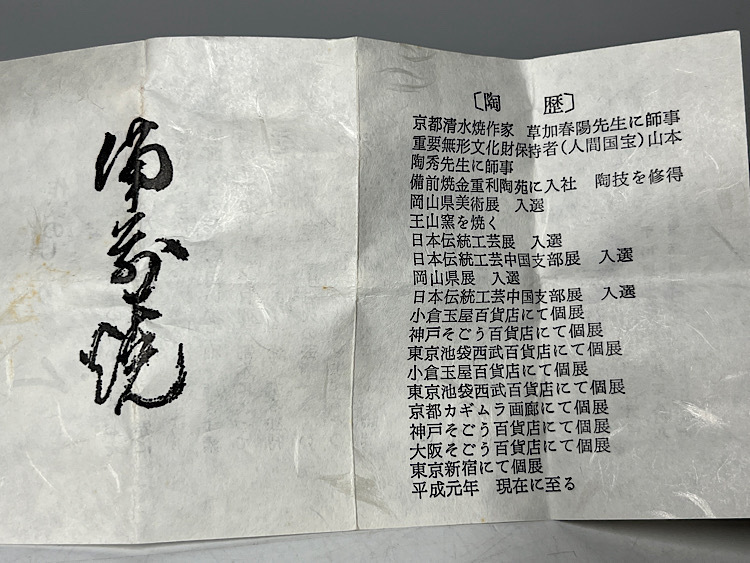 備前焼
〔陶 歴〕
京都清水焼作家 草加春陽先生に師事
重要無形文化財保持者(人間国宝)山本
陶秀先生に師事
備前焼金重利陶苑に入社 陶技を修得
岡山県美術展 入選
王山窯を焼く
日本伝統工芸展 入選
日本伝統工芸中国支部展 入選
岡山県展 入選
日本伝統工芸中国支部展 入選
小倉玉屋百貨店にて個展
神戸そごう百貨店にて個展
東京池袋西武百貨店にて個展
小倉玉屋百貨店にて個展
東京池袋西武百貨店にて個展
京都カギムラ画廊にて個展
神戸そごう百貨店にて個展
大阪そごう百貨店にて個展
東京新宿にて個展
平成元年 現在に至る